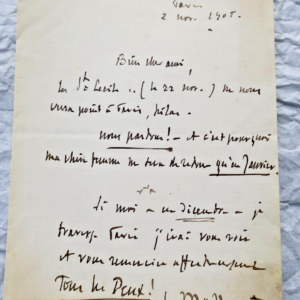 Paris
2 nov. 1905.
Bien cher ami,
la Ste Cécile .. (le 22 nov.) ne nous
verra point à Paris, hélas.
nous partons! — et c'est pourquoi
ma chère femme ne sera de retour qu'en Janvier.
Si moi — en décembre — je
traverse Paris j'irai vous voir
et vous remercier affectueusement
Tous les Deux!